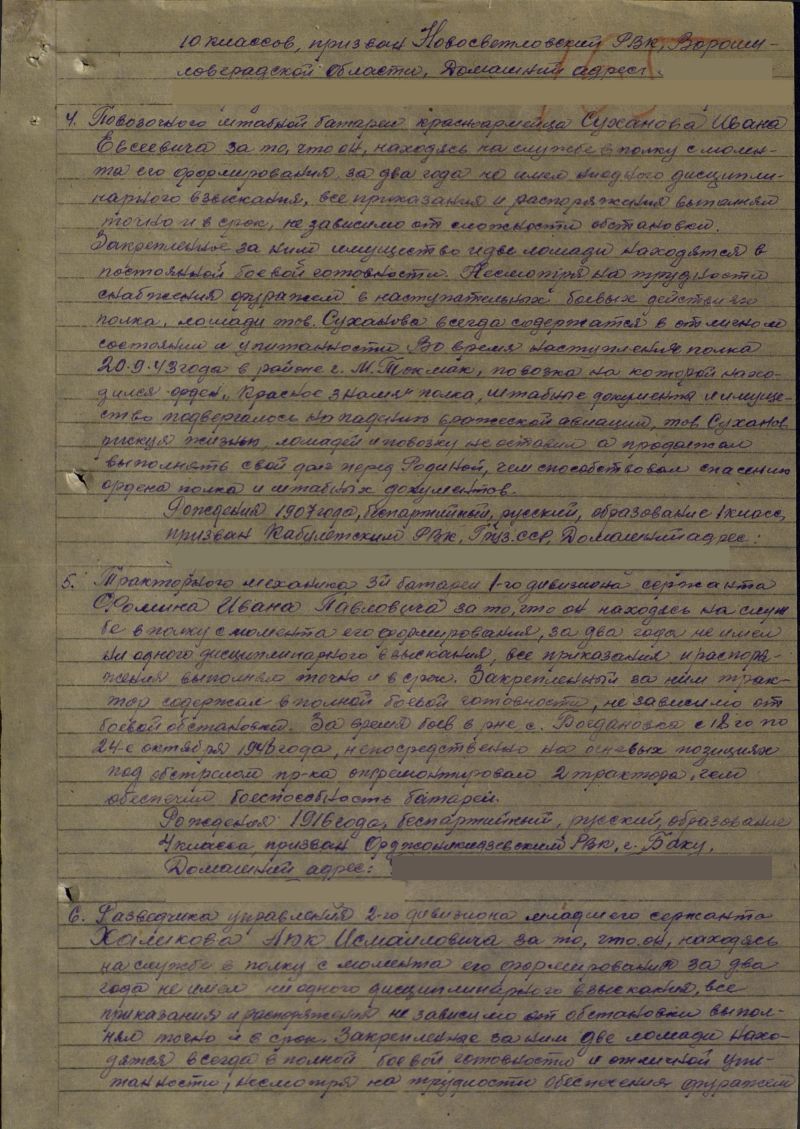 10 классов, призван Новосветловский РВК, Вороши-
ловградской области, Домашний адрес:
4. Повозочного штабной батареи красноармейца Суханова Ивана
Евсеевича за то, что он, находясь на службе в полку с момен-
та его формирования, за два года не имел ниодного дисципли-
нарного взыскания, все приказания и распоряжения выполнял
точно и в срок, не зависимо от сложности обстановки.
Закрепленное за ним имущество и две лошади находятся в
постоянной боевой готовности. Несмотря на трудности
снабжения фуражем в наступательных боевых действиях
полка, лошади тов. Суханова всегда содержатся в отличном
состоянии и упитанности. Во время наступления полка
20.9.43 года в районе г. М. Токмак, повозка на которой нахо-
дился орден „Красное знамя" полка, штабные документы и имуще-
ство подвергалось нападению вражеской авиации, тов. Суханов
рискуя жизнью, лошадей и повозку не оставил а продолжал
выполнять свой долг перед Родиной, чем способствовал спасению
ордена полка и штабных документов.
Рождения 1907 года, беспартийный, русский, образование 1 класс,
призван Кабулетским РВК, Груз.ССР, Домашний адрес:
5. Тракторного механика 3й батареи 1-го дивизиона сержанта
Фомина Ивана Павловича за то, что он находясь на служ
бе в полку с момента его формирования, за два года не имел
ни одного дисциплинарного взыскания, все приказания и распоря-
жения выполнял точно и в срок. Закрепленный за ним трак-
тор содержал в полной боевой готовности, не зависимо от
боевой обстановки. За время боев в р-не с. Богдановка с 18 го по
24-е октября года, непосредственно на огневых позициях
под обстрелом пр-ка отремонтировал 2 трактора, чем
обеспечил боеспособность батареи.
Рождения 1916 года, беспартийный, русский, образование
4 класса, призван Орджоникидзевским РВК, г. Баку,
Домашний адрес:
6. Разведчика управления 2-го дивизиона младшего сержанта
Халикова Исмаиловича за то, что он, находясь
на службе в полку с момента его формирования за два
года не имел ниодного дисциплинарного взыскания, все
приказания и распоряжения не зависимо от обстановки выпол-
нял точно и в срок. Закрепленные за ним две лошади нахо-
дятся всегда в полной боевой готовности и отличной упи-
танности, несмотря на трудности обеспечения фуражем